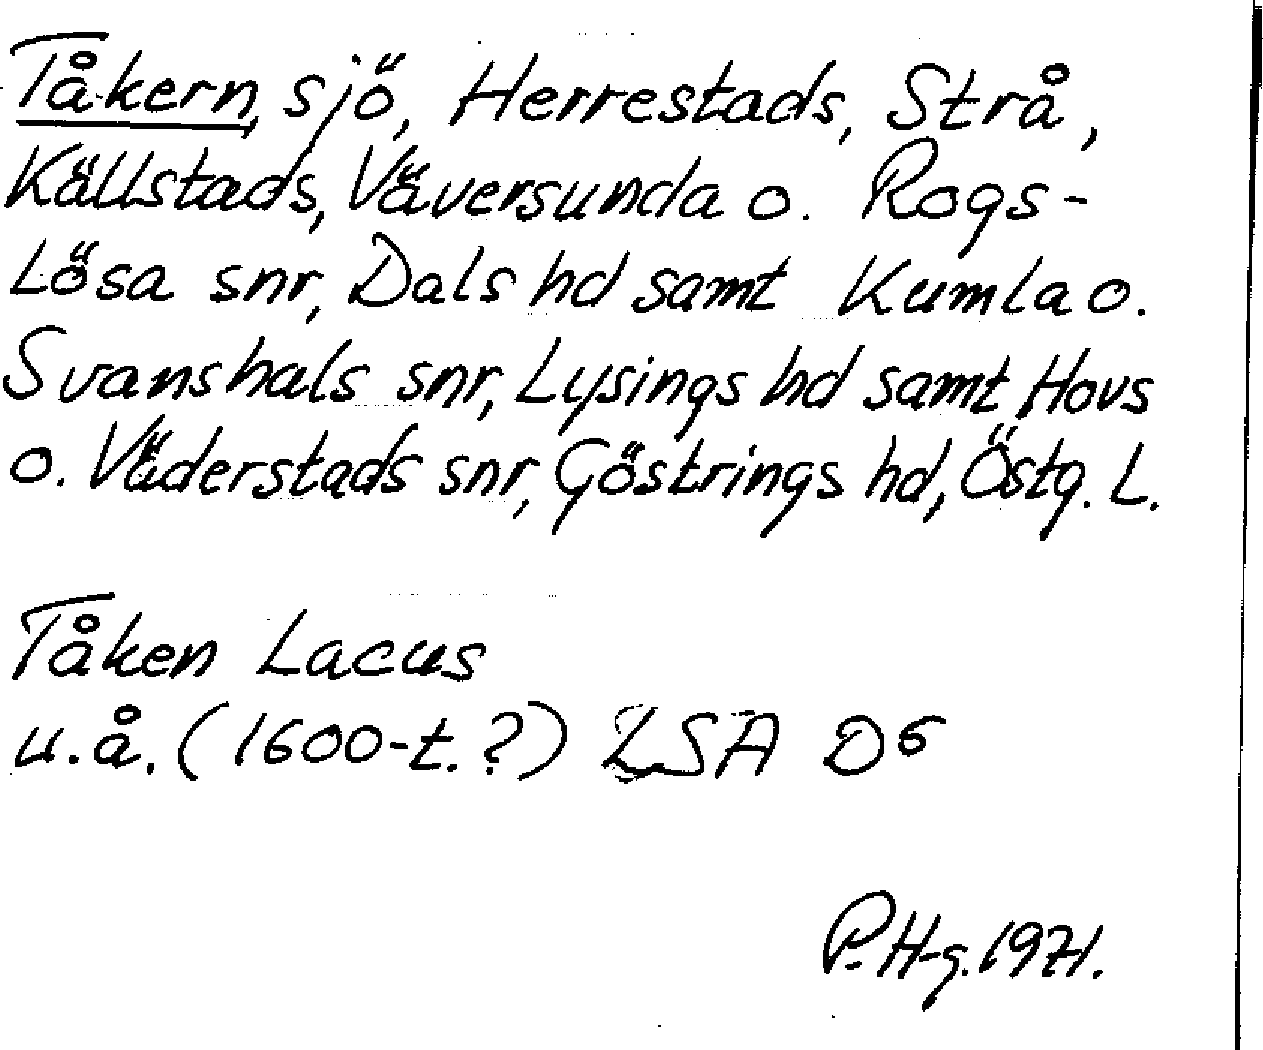 Tåkern, sjö, Herrestads, Strå,
Källstads, Väversunda o. Rogs-
lösa snr, Dals hd samt Kumla o.
Svanshals snr, Lysings hd samt Hovs
o. Väderstads snr, Göstrings hd, Östg. L.
Tåken Lacus
u.å. (1600-t.?) LSA D6
P. H-g. 1971.